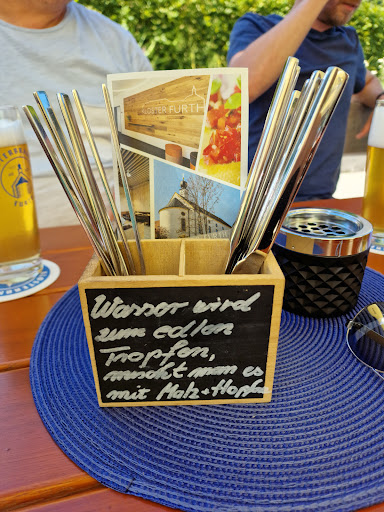 FURTH
Wasser wird
zum edlen
Tropfen,
mischt man es
mit Malz + Hopfen